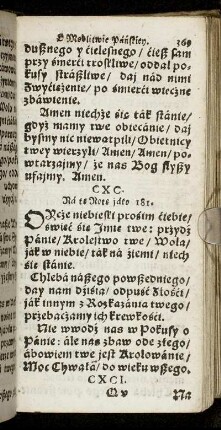 O Modlitwie Pańskiey. 369
dusznego y ćielesnego/ ćiesz sam
przy śmierći troskliwe/ oddal po-
kusy strászliwe/ day nád nimi
zwyćiężenie/ po śmierći wieczne
zbáwienie.
Amen niechże się ták stánie/
gdyż mamy twe obiecánie/ day
bysmy nic niewątpili/ Obietnicy
twey wierzyli/ Amen/ Amen/ po-
wtarzajmy/ że nas Bog słyszy
ufajmy. Amen.
CXC.
Ná tę Notę jáko 181.
OYcże niebieski prosim ćiebie/
święć się Imię twe: przydź
Pánie/ Krolestwo twe/ Wola/
ják w niebie/ ták ná źiemi/ niech
się stánie.
Chlebá nászego powszedniego/
day nam dźiśia/ odpuść złośći/
ják innym z Rozkazánia twego/
przebaczamy ich krewkośći.
Nie wwodź nas w Pokusy o
Pánie: ále nas zbaw ode złego/
ábowiem twe jest Krolowánie/
Moc Chwałá/ do wieku wszego.
CXCI.
Q v Ná